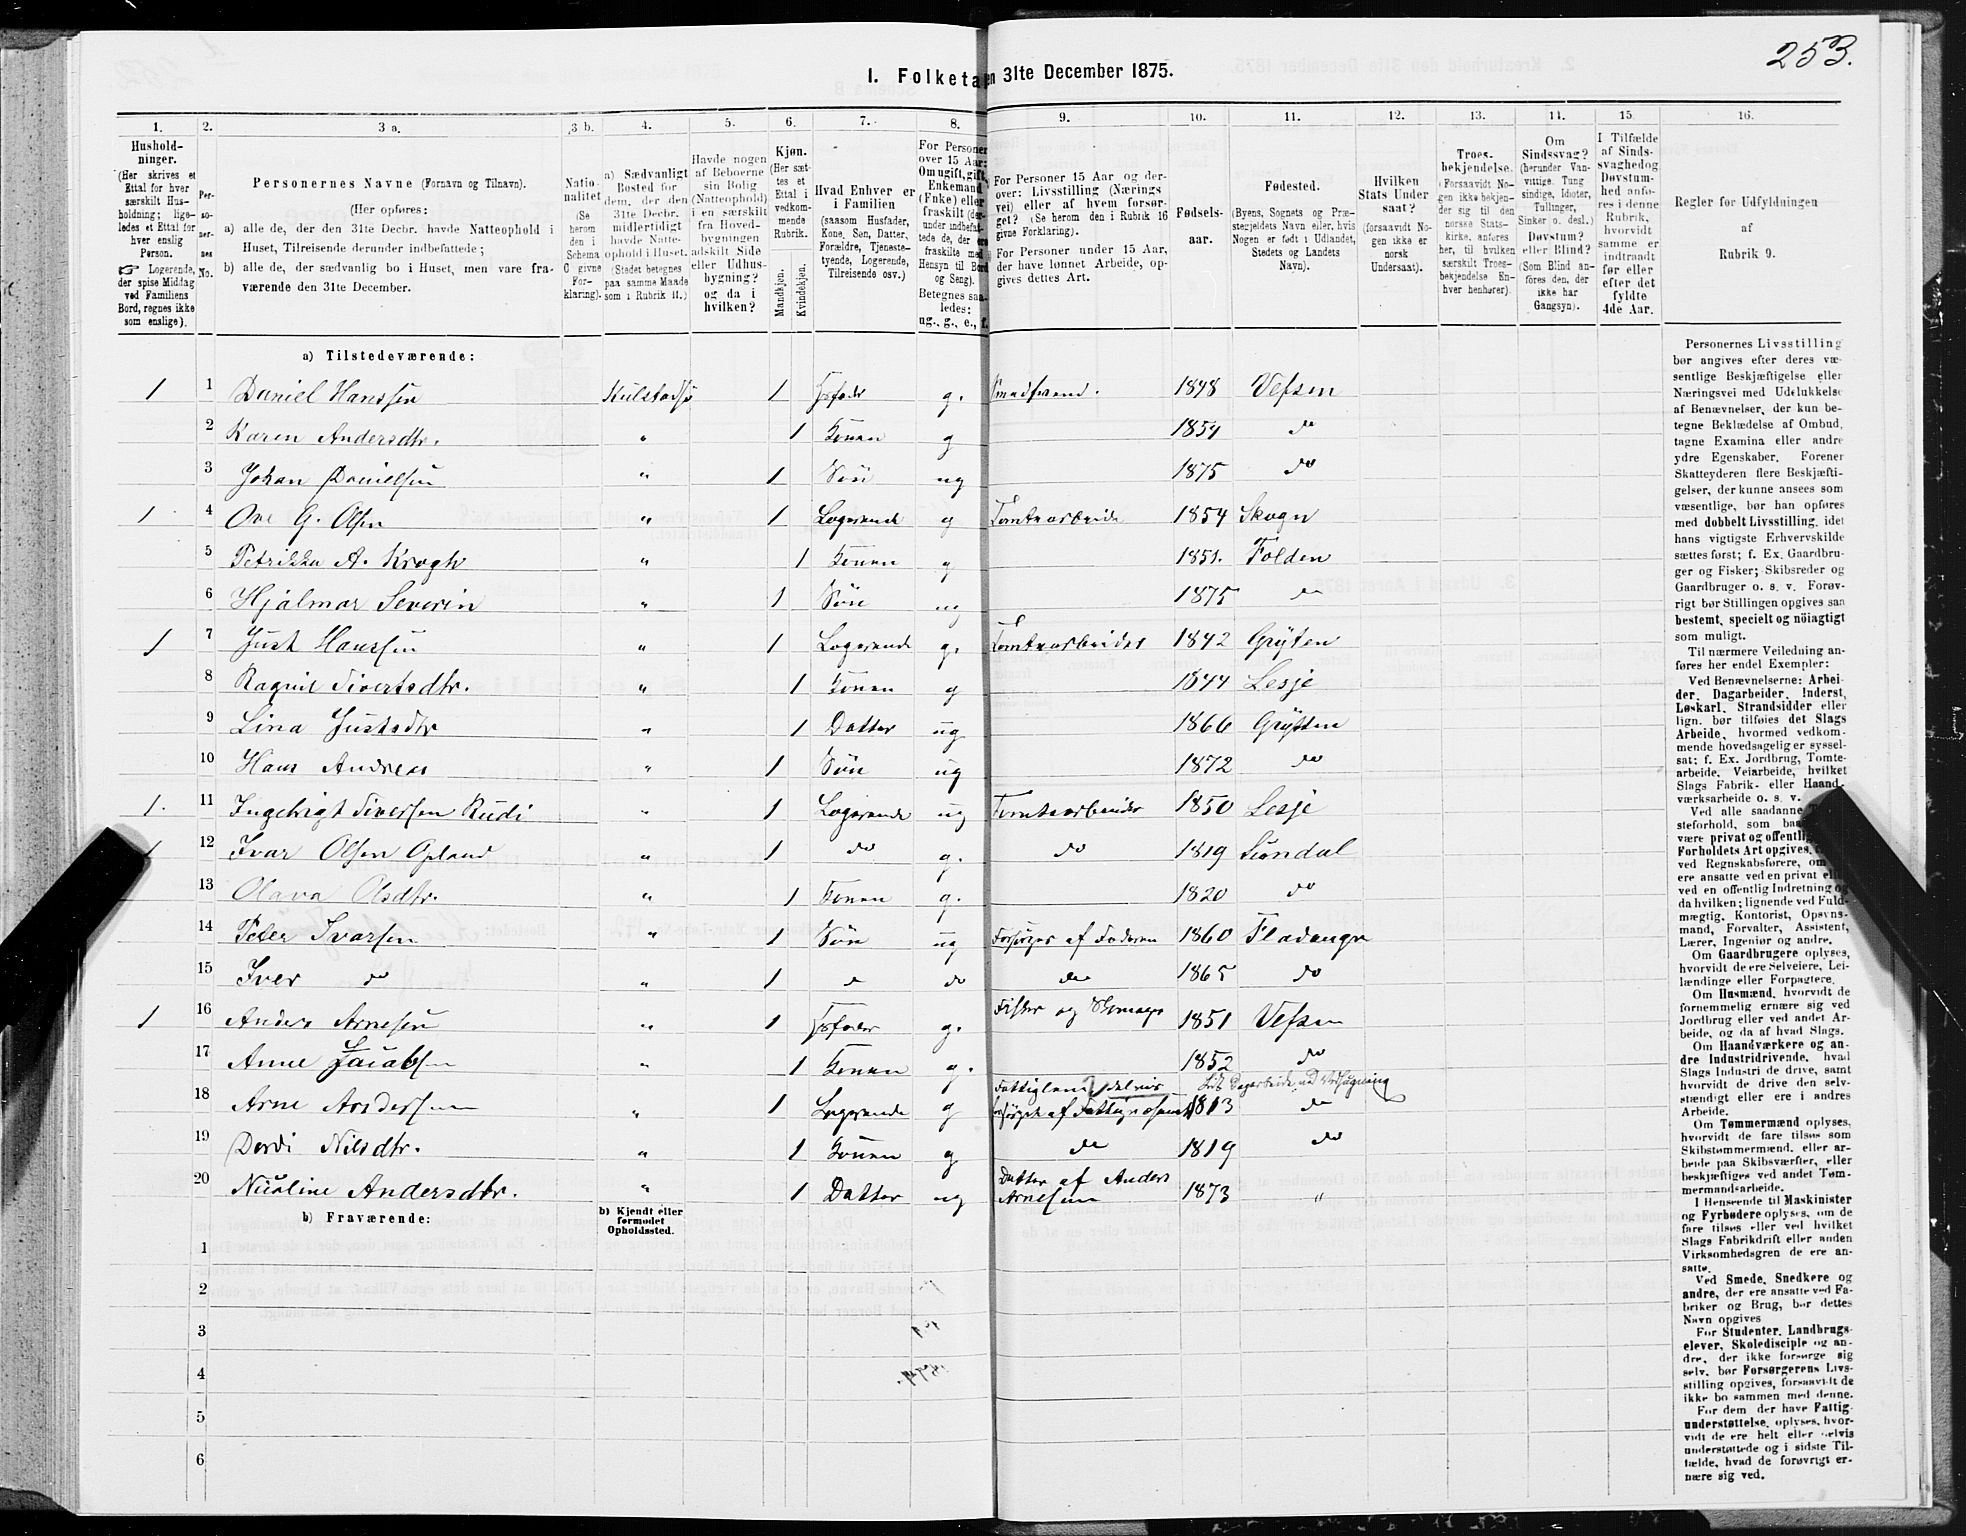 253.
I. Folketa en 31te December 1875.
1. 2. 3 a. 3 b. 4. 5. 6. 7. 8. 9. 10. 11. 12. 13. 14. 15. 16.
Hushold-
ninger.
(Her skrives et
Ettal for hver
særskilt Hus-
holdning; lige-
ledes et Ettal for
hver enslig
Person.
☞ Logerende,
der spise Middag
ved Familiens
Bord, regnes ikke
som enslige).
Per-
so-
ner-
nes
No.
Personernes Navne (Fornavn og Tilnavn).
(Her opføres:
a) alle de, der den 31te Decbr. havde Natteophold i
Huset, Tilreisende derunder indbefattede;
b) alle de, der sædvanlig bo i Huset, men vare fra-
værende den 31te December.
Natio-
nalitet
(Se
herom
den i
Schema
C givne
For-
klaring).
a) Sædvanligt
Bosted for
dem, der den
31te Decbr.
midlertidigt
havde Natte-
ophold i Huset.
(Stedet betegnes
paa samme Maade
som i Rubrik 11.)
Havde nogen
af Beboerne
sin Bolig
(Natteophold)
i en særskilt
fra Hoved-
bygningen
adskilt Side
eller Udhus-
bygning?
og da i
hvilken?
Kjøn.
(Her sæt-
tes et
Ettal i
vedkom-
mende
Rubrik.
Mandkjøn.
Kvindekjøn.
Hvad Enhver er
i Familien
(saasom Husfader,
Kone, Søn, Datter,
Forældre, Tjeneste-
tyende, Logerende,
Tilreisende osv.)
For Personer
over 15 Aar:
Om ugift, gift,
Enkemand
(Enke) eller
fraskilt (der-
under indbefat-
tede de, der ere
fraskilte med
Hensyn til Bord
og Seng).
Betegnes saa-
ledes:
ug., g., e., f.
For Personer 15 Aar og der-
over: Livsstilling (Nærings
vei) eller af hvem forsør-
get? (Se herom den i Rubrik 16
givne Forklaring).
For Personer under 15 Aar,
der have lønnet Arbeide, op-
gives dettes Art.
Fødsels-
aar.
Fødested.
(Byens, Sognets og Præ-
stegjeldets Navn eller, hvis
Nogen er født i Udlandet,
Stedets og Landets
Navn).
Hvilken
Stats Under
saat?
(forsaavidt No-
gen ikke er
norsk
Undersaat).
Troes-
bekjendelse.
(Forsaavidt No-
gen ikke bekjen-
der sig til den
norske Stats-
kirke, anføres
her, til hvilken
særskilt Troes-
bekjendelse En-
hver henhører).
Om
Sindssvag?
(herunder Van-
vittige, Tung
sindige, Idioter,
Tullinger,
Sinker o. desl.)
Døvstum?
eller Blind?
(Som Blind an-
føres den, der
ikke har
Gangsyn).
I Tilfælde
af Sinds-
svaghedog
Døvstum-
hed anfø-
res i denne
Rubrik,
hvorvidt
samme er
indtraadt
før eller
efter det
fyldte
4de Aar.
Regler for Udfyldningen
af
Rubrik 9.
a) Tilstedeværende:
1 1 Daniel Hanssen 1 Hsfader g. 1848 Vefsen
2 Karen Andersdtr. „ 1 Konen g 1854 do
3 Johan Danielsen „ 1 Søn ug 1875 do
1 4 Ove G. Olsen „ 1 Logerende g Tomtearbeide 1854 Skogn
5 Petrikka A. Krogh „ 1 Konen g 1851. Folden
6 Hjalmar Severin „ 1 Søn ug 1875 do
1 7 Just Hanssen „ 1 Logerende g. Tomtearbeider 1842 Grytten
8 Ragnil Sivertsdtr. „ 1 Konen g 1844 Lesje
9 Lina Justsdtr „ 1 Datter ug 1866 Grytten
10 Hans Andreas „ 1 Søn ug 1872 do
1. 11 Ingebrigt Siversen Rudi „ 1 Logerende ug Tomtearbeider 1850 Lesje
1 12 Ivar Olsen Opland „ 1 do g. do 1819 Sundal
13 Olava Olsdtr. „ 1 Konen g. 1820 do
14 Peter Ivarsen „ 1 Søn ug Forsørges af Faderen 1860 Fladanger
15 Iver do „ 1 do do 1865 do
1 16 Anders Arnesen „ 1 Hsfader g. Fisker og 1851 Vefsen
17 Anne Jacobsen „ 1 Konen g. 1852 do
18 Arne Andersen „ 1 Logerende g Fattiglem delvis 1813 do
19 Dordi Nilsdtr. „ 1 Konen g do 1819 do
20 Nicoline Andersdtr. „ 1 Datter ug Datter af Anders Arnesen 1873 „
b) Fraværende:
b) Kjendt eller
formodet
Opholdssted.
1
2
3
4
5
6
Personernes Livsstilling
bør angives efter deres væ-
sentlige Beskjæftigelse eller
Næringsvei med Udelukkelse
af Benævnelser, der kun be-
tegne Beklædelse af Ombud,
tagne Examina eller andre
ydre Egenskaber. Forener
Skatteyderen flere Beskjæfti-
gelser, der kunne ansees som
væsentlige, bør han opføres
med dobbelt Livsstilling, idet
hans vigtigste Erhvervskilde
sættes først; f. Ex. Gaardbru-
ger og Fisker; Skibsreder og
Gaardbruger o. s. v. Forøv-
rigt bør Stillingen opgives saa
bestemt, specielt og nöiagtigt
som muligt.
Til nærmere Veiledning an-
føres her endel Exempler:
Ved Benævnelserne: Arbei-
der, Dagarbeider, Inderst,
Løskarl, Strandsidder eller
lign. bør tilføies det Slags
Arbeide, hvormed vedkom-
mende hovedsagelig er syssel-
sat; f. Ex. Jordbrug, Tomte-
arbeide, Veiarbeide, hvilket
Slags Fabrik- eller Haand-
værksarbeide o. s. v.
Ved alle saadanne
steforhold, som
være privat og offentlig
Forholdets Art opgives,
ved Regnskabsførere, om
ere ansatte ved en privat
ved en offentlig Indretning og
da hvilken; lignende ved Fuld-
mægtig, Kontorist, Opsyns-
mand, Forvalter, Assistent,
Lærer, Ingeniør og andre.
Om Gaardbrugere oplyses,
hvorvidt de ere Selveiere, Lei-
lændinge eller Forpagtere.
Om Husmænd, hvorvidt de
fornemmelig ernære sig ved
Jordbrug eller ved andet Ar-
beide, og da af hvad Slags.
Om Haandværkere og an-
dre Industridrivende, hvad
Slags Industri de drive, samt
hvorvidt de drive den selv-
stændigt eller ere i andres
Arbeide.
Om Tømmermænd oplyses,
hvorvidt de fare tilsøs som
Skibstømmermænd, eller ar-
beide paa Skibsværfter, eller
beskjæftiges ved andet Tøm-
mermandsarbeide.
I Henseende til Maskinister
og Fyrbødere oplyses, om de
fare tilsøs eller ved hvilket
Slags Fabrikdrift eller anden
Virksomhedsgren de ere an-
satte.
Ved Smede, Snedkere og
andre, der ere ansatte ved Fa-
briker og Brug, bør dettes
Navn opgives
For Studenter, Landbrugs-
elever, Skoledisciple og an-
dre, der ikke forsørge sig
selv, bør Forsørgerens Livs-
stilling opgives, forsaavidt de
ikke bo sammen med denne.
For dem der have Fattig-
understøttelse, oplyses, hvor-
vidt de ere helt eller delvis
understøttede og i sidste Til-
fælde, hvad de forøvrigt er-
nære sig ved.